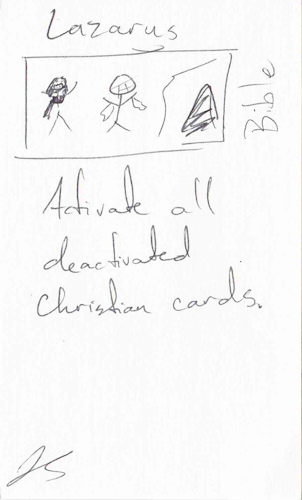 Lazarus
Bible
Activate all
deactivated
Christian cards.
JS